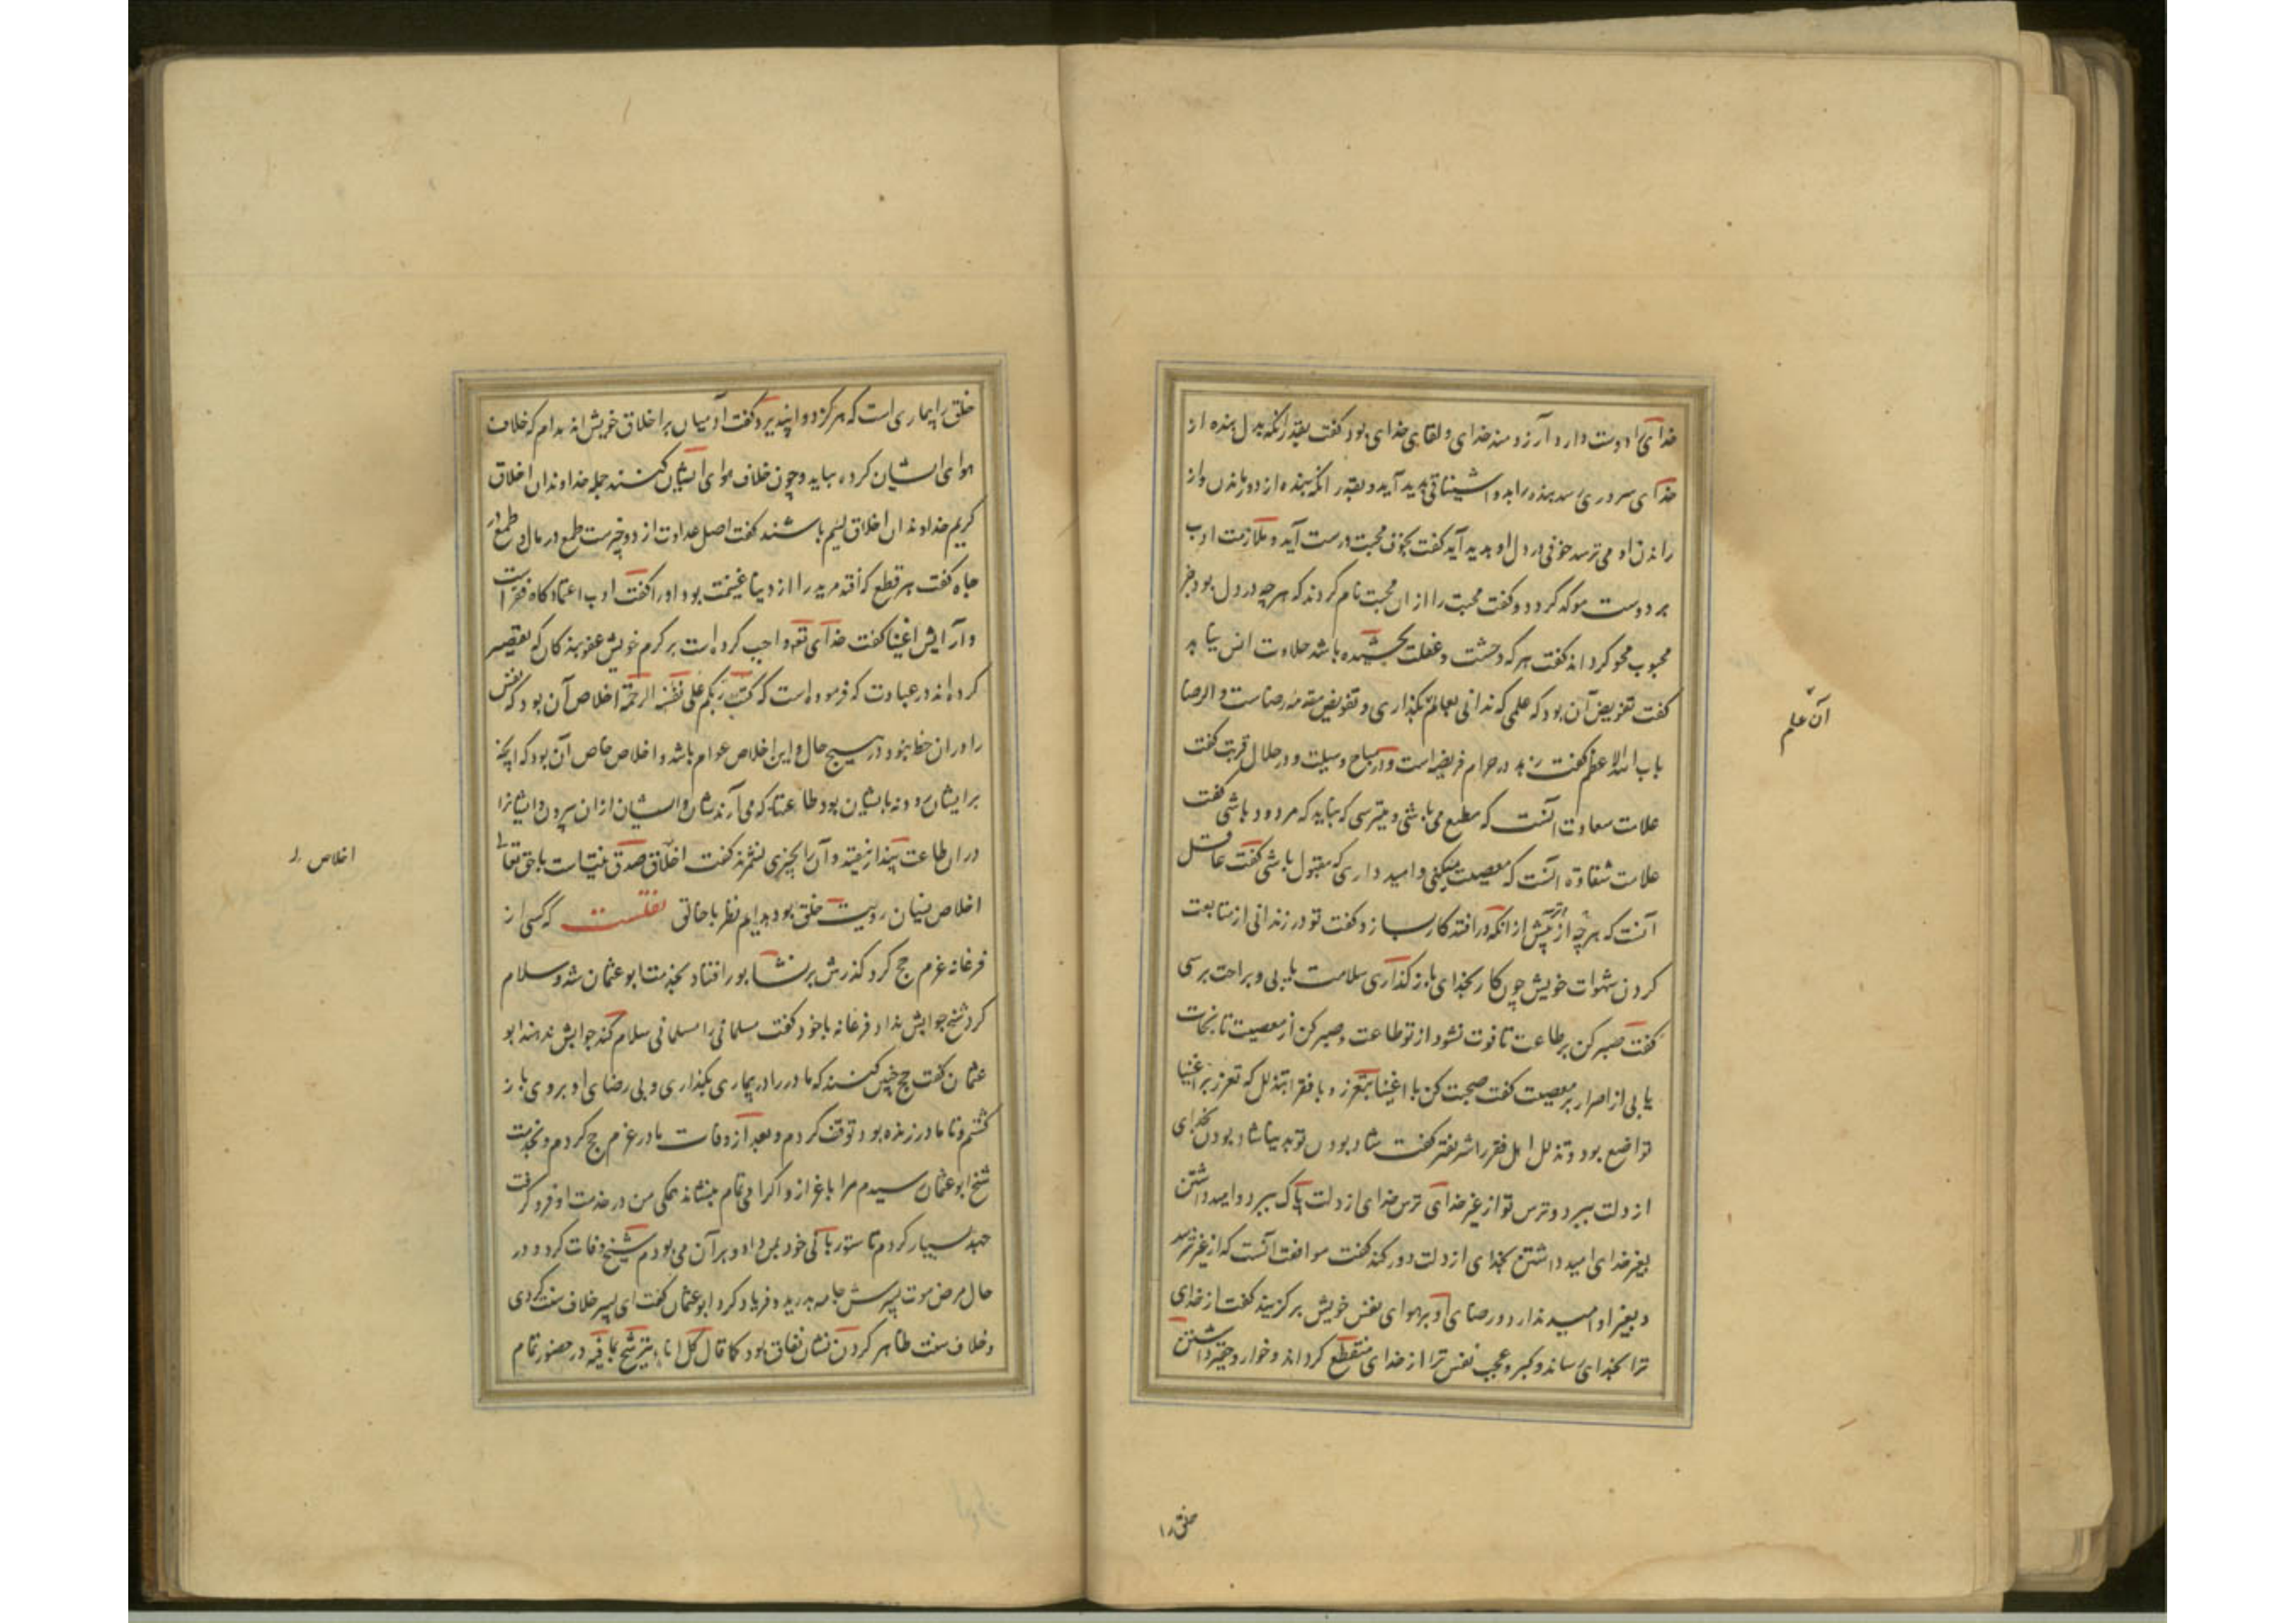 خدای را دوست دارد آرزومند خدای و لقای خدای بود گفت بقدر آنکه بدل بنده از
خدای سروری رسد بنده را بدو اشتیاقی پدید آید و بقدر آنکه بنده از دور ماندن و از
راندن او می ترسد خوفی در دل او پدید آید گفت بخوف محبت درست آید و ملازمت ادب
بر دوست موکد گردد و گفت محبت را از ان محبت نام کردند که هر چه در دل بود جز
محبوب محو گرداند گفت هر که وحشت و غفلت نچشیده باشد حلاوت انس نیابد
گفت تفویض آن بود که علمی که ندانی بعالم بگذاری و تفویض مقدمه رضاست و الرضا
باب الله الاعظم گفت زهد در حرام فریضه است و در مباح وسیلت و در حلال قربت گفت
علامت سعادت آنست که مطیع می باشی و میترسی که نباید که مردود باشی گفت
علامت شقاوة آنست که معصیت میکنی و امید داری که مقبول باشی گفت عاقل
آنست که هر چه از پیش از آنکه در افتد کار بسازد گفت تو در زندانی از متابعت
کردن شهوات خویش چون کار بخدای بازگذاری سلامت یابی و براحت برسی
گفت صبر کن بر طاعت تا فوت نشود از تو طاعت و صبر کن از معصیت تا نجات
یابی از اصرار بر معصیت گفت صحبت کن با اغنیا بتعزز و با فقرا بتذلل که تعزز بر اغنیا
تواضع بود و تذلل اهل فقر را شریفتر گفت شاد بودن تو بدنیا شاد بودن بخدای
از دلت ببرد و ترس تو از غیر خدای ترس خدای از دلت پاک ببرد و امید داشتن
بغیر خدای امید داشتن بخدای از دلت دور کند گفت موافق آنست که از غیر نترسد
و بغیر او امید ندارد و رضای او بر هوای نفس خویش برگزیند گفت از خدای
ترا بخدای رساند و کبر و عجب نفس ترا از خدای منقطع گرداند و خوار و حقیر داشتن
آن علم
خلق را
خلق را بیماری است که هرگز دوا نپذیرد گفت آدمیان بر اخلاق خویش اند مدام که خلاف
هوای ایشان کرده نیاید و چون خلاف هوای ایشان کنند جمله خداوندان اخلاق
کریم خداوندان اخلاق لئیم باشند گفت اصل عداوت از دو چیزست طمع در مال و طمع در
جاه گفت هر قطع که افتد مرید را از دنیا غنیمت بود او را گفت ادب اعتمادگاه فقراست
و آرایش اغنیا گفت خدای تعه واجب کرده است بر کرم خویش عفو بندگان که تقصیر
کرده اند در عبادت که فرموده است که کتب ربکم علی نفسه الرحمة اخلاص آن بود که نفس
را در ان حظ نبود در هیچ حال و این اخلاص عوام باشد و اخلاص خاص آن بود که آنچه
بر ایشان رود نه بایشان بود طاعتها که می آرندشان و ایشان از ان بیرون و ایشانرا
در ان طاعت پندار نیفتد و آن را بچیزی نشمرند گفت اخلاق صدق نیتاست با حق تعالی
اخلاص نسیان رویت خلق بود بدایم نظر با خالق نقلست که کسی از
فرغانه عزم حج کرد گذرش بر نشابور افتاد بخدمت ابو عثمان شد و سلام
کرد شیخ جوابش نداد فرغانه با خود گفت مسلمانی را مسلمانی سلام کند جوابش ندهند ابو
عثمان گفت حج چنین کنند که مادر را در بیماری بگذاری و بی رضای او بروی باز
گشتم و تا مادر زنده بود توقف کردم و بعد از وفات مادر عزم حج کردم و بخدمت
شیخ ابو عثمان رسیدم مرا باعزاز و اکرامی تمام بنشاند همگی من در خدمت او فرو گرفت
جهد بسیار کردم تا ستوربانی خود بمن داد و بر آن می بودم شیخ وفات کرد و در
حال مرض موت پسرش جامه بدرید و فریاد کرد ابو عثمان گفت ای پسر خلاف سنت کردی
و خلاف سنت ظاهر کردن نشان نفاق بود کما قال کل اناء یترشح بما فیه در حضور تمام
اخلاص